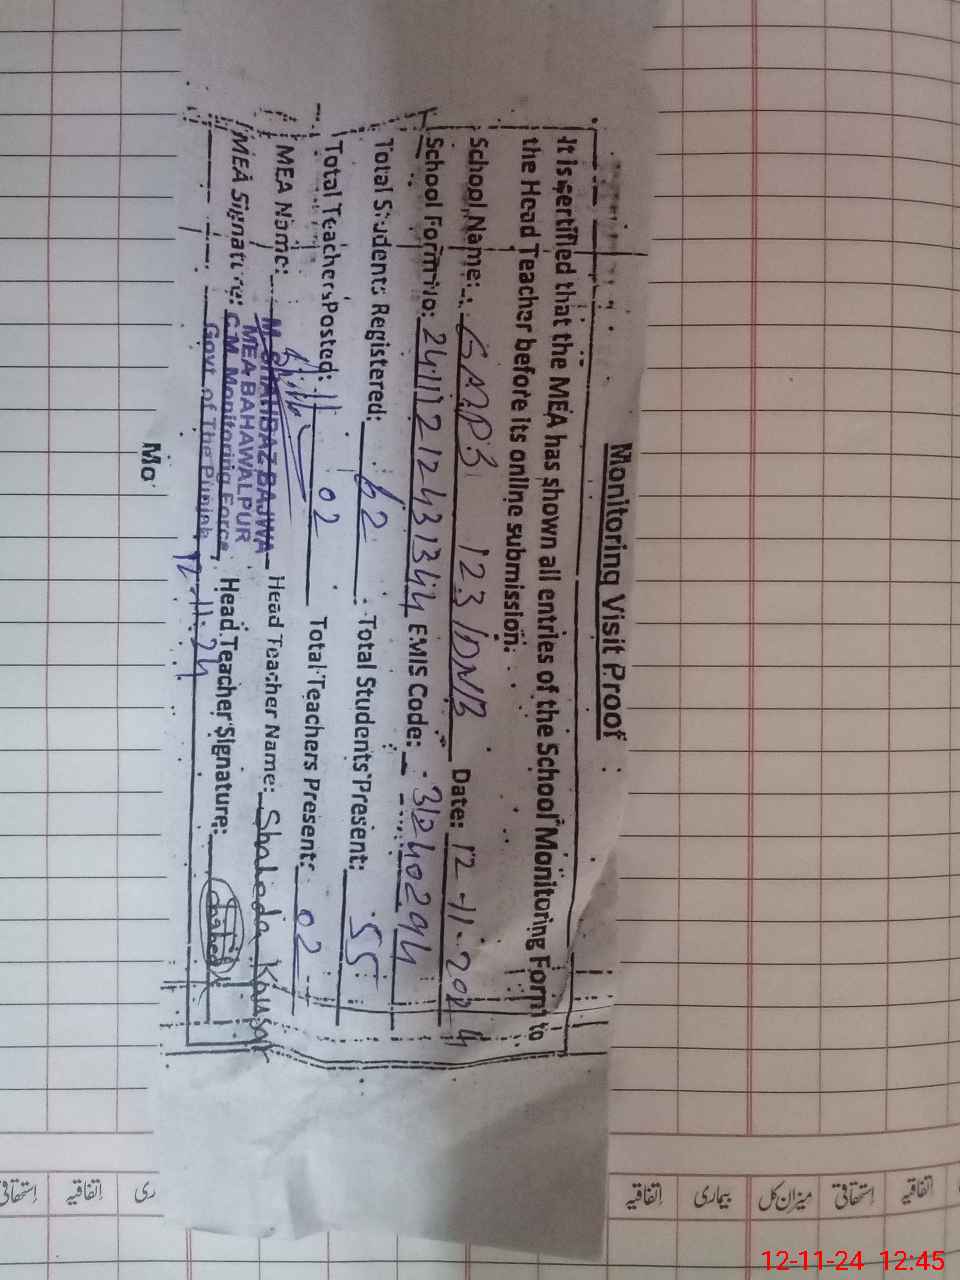 Monitoring Visit Proof
It is certified that the MEA has shown all entries of the School Monitoring Form to
the Head Teacher before its online submission.
School Name: GMPS 123/DNB Date: 12-11-2024
School Form No: 24111212431344 EMIS Code: 31240294
Total Students Registered: 62 Total Students Present: 55
Total Teachers Posted: 02 Total Teachers Present: 02
MEA Name: M. SHAHBAZ BAJWA Head Teacher Name: Shaleda Kousar
MEA BAHAWALPUR
MEA Signature: C.M. Monitoring Force, Head Teacher Signature:
Govt of The Punjab 12-11-24
Mo
اِستحقاقی اِتفاقیہ ری اِتفاقیہ بیماری میزان کل اِستحقاقی اِتفاقیہ
12-11-24 12:45